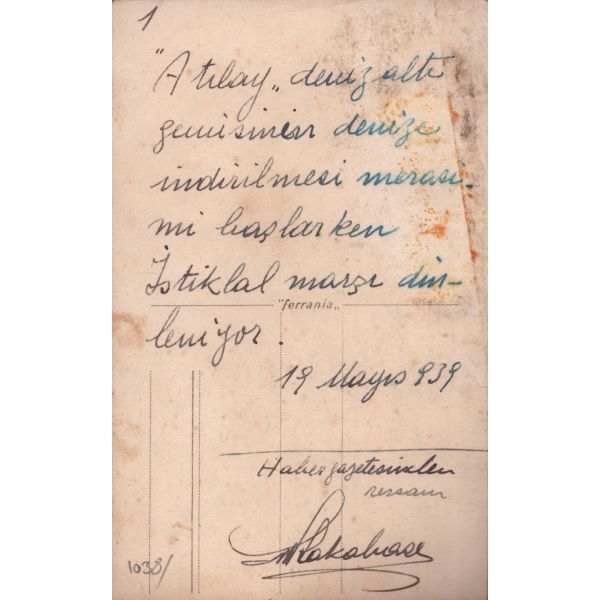 1
"Atılay„ denizaltı
gemisinin denize
indirilmesi merasi-
mi başlarken
İstiklal marşı din-
"ferrania„
leniyor.
19 Mayıs 939
Haber gazetesinden
ressam
1038/